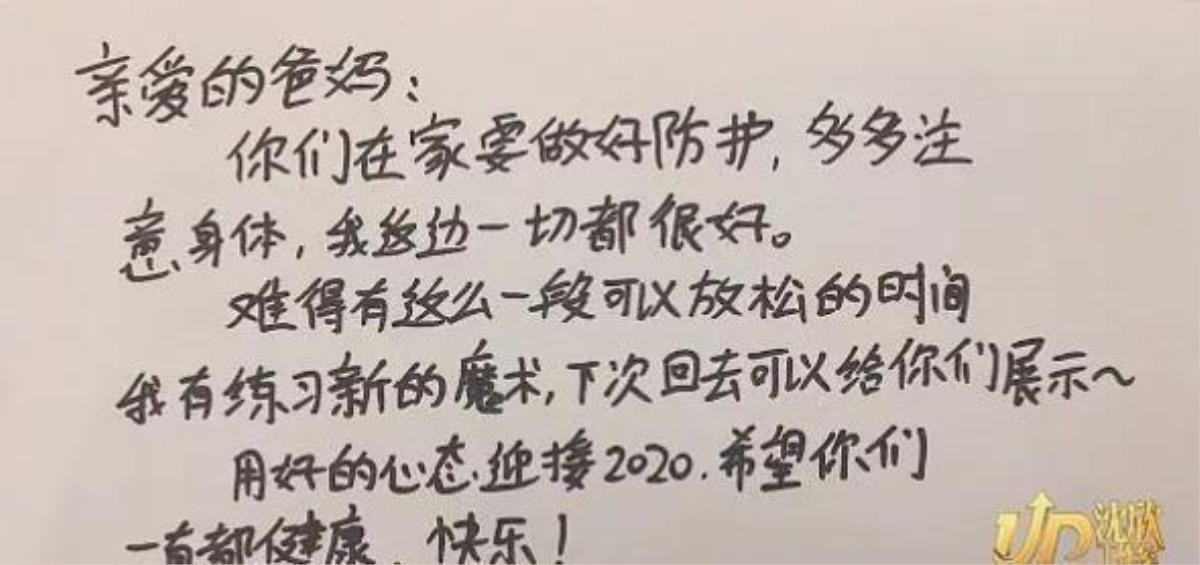 亲爱的爸妈：
你们在家要做好防护，多多注
意身体，我这边一切都很好。
难得有这么一段可以放松的时间
我有练习新的魔术，下次回去可以给你们展示～
用好的心态迎接2020.希望你们
一直都健康、快乐！
UP沈欣